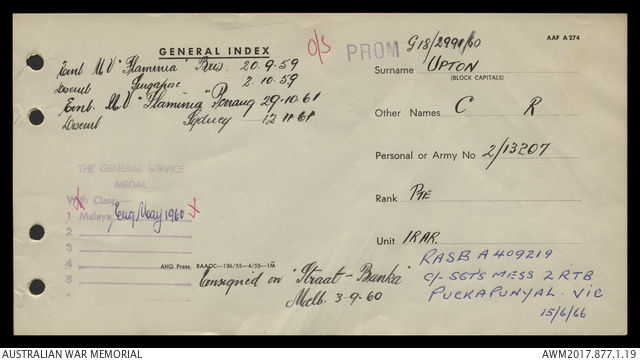 GENERAL INDEX
O/S
PROM
G18/2991/60
AAF A 274
Emb MV "Flaminia" Bris. 20.9.59
Disemb Singapore 2.10.59
Emb. MV "Flaminia" Penang 29.10.61
Disemb Sydney 12.11.61
Surname UPTON
(BLOCK CAPITALS)
Other Names C R
Personal or Army No 2/13207
Rank PTE
Unit 1RAR.
THE GENERAL SERVICE
MEDAL
With Clasp
1 Malaya Emq May 1960
2
3
4
5
AHQ Press RAAOC—136/55—4/55—1M
Consigned on "Straat-Banka"
Melb. 3-9-60
RASB A409219
C/- SGT'S MESS 2 RTB
PUCKAPUNYAL. VIC
15/6/66
AUSTRALIAN WAR MEMORIAL
AWM2017.877.1.19